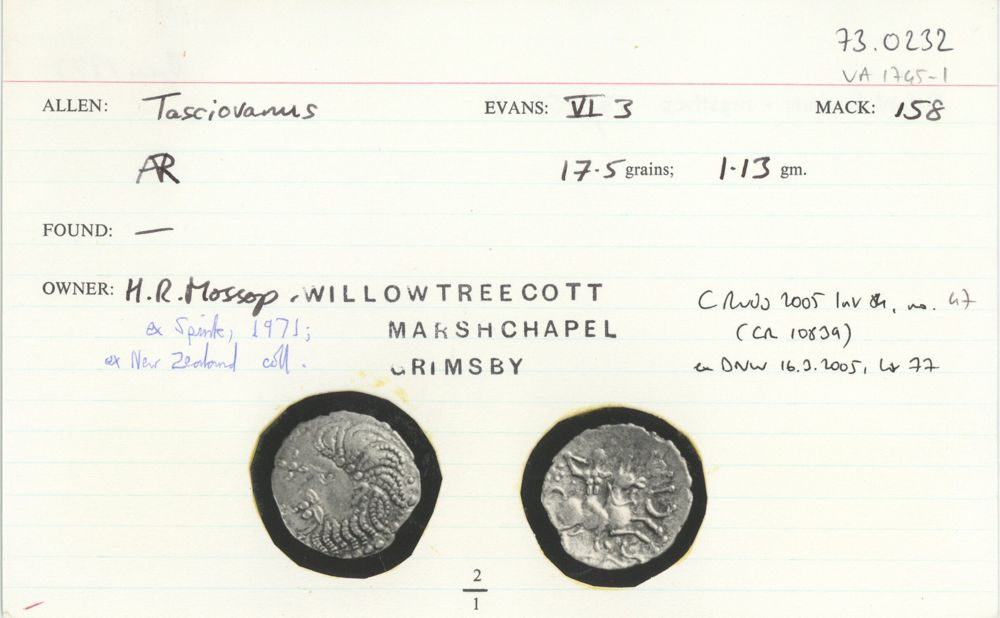 73.0232
VA 1745-1
ALLEN: Tasciovanus EVANS: VI 3 MACK: 158
AR 17.5 grains; 1.13 gm.
FOUND: —
OWNER: H.R. Mossop, WILLOWTREECOTT
MARSHCHAPEL
GRIMSBY
ex Spink, 1971;
ex New Zealand coll.
2005 no. 47
(CR 10839)
ex DNW 16.3.2005, 77
2
1